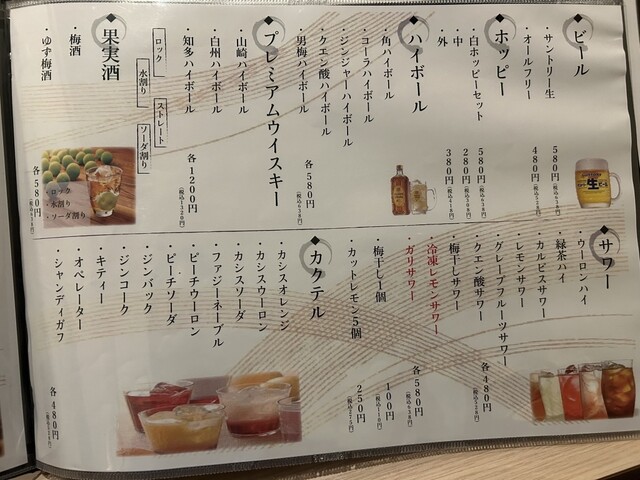 ビール
・サントリー生 580円(税込638円)
・オールフリー 480円(税込528円)
ホッピー
・白ホッピーセット 580円(税込638円)
・中 280円(税込308円)
・外 380円(税込418円)
ハイボール
・角ハイボール
・コーラハイボール
・ジンジャーハイボール
・クエン酸ハイボール
・男梅ハイボール
各580円(税込638円)
プレミアムウイスキー
・山崎ハイボール
・白州ハイボール
・知多ハイボール
各1200円(税込1320円)
ロック
水割り
ストレート
ソーダ割り
果実酒
・梅酒
・ゆず梅酒
・ロック
・水割り
・ソーダ割り
各580円(税込638円)
サワー
・ウーロンハイ
・緑茶ハイ
・カルピスサワー
・レモンサワー
・グレープフルーツサワー
・クエン酸サワー
・梅干しサワー
各480円(税込528円)
・冷凍レモンサワー
・ガリサワー
各580円(税込638円)
・梅干し1個 100円(税込110円)
・カットレモン5個 250円(税込275円)
カクテル
・カシスオレンジ
・カシスウーロン
・カシスソーダ
・ファジーネーブル
・ピーチウーロン
・ピーチソーダ
・ジンバック
・ジンコーク
・キティー
・オペレーター
・シャンディガフ
各480円(税込528円)